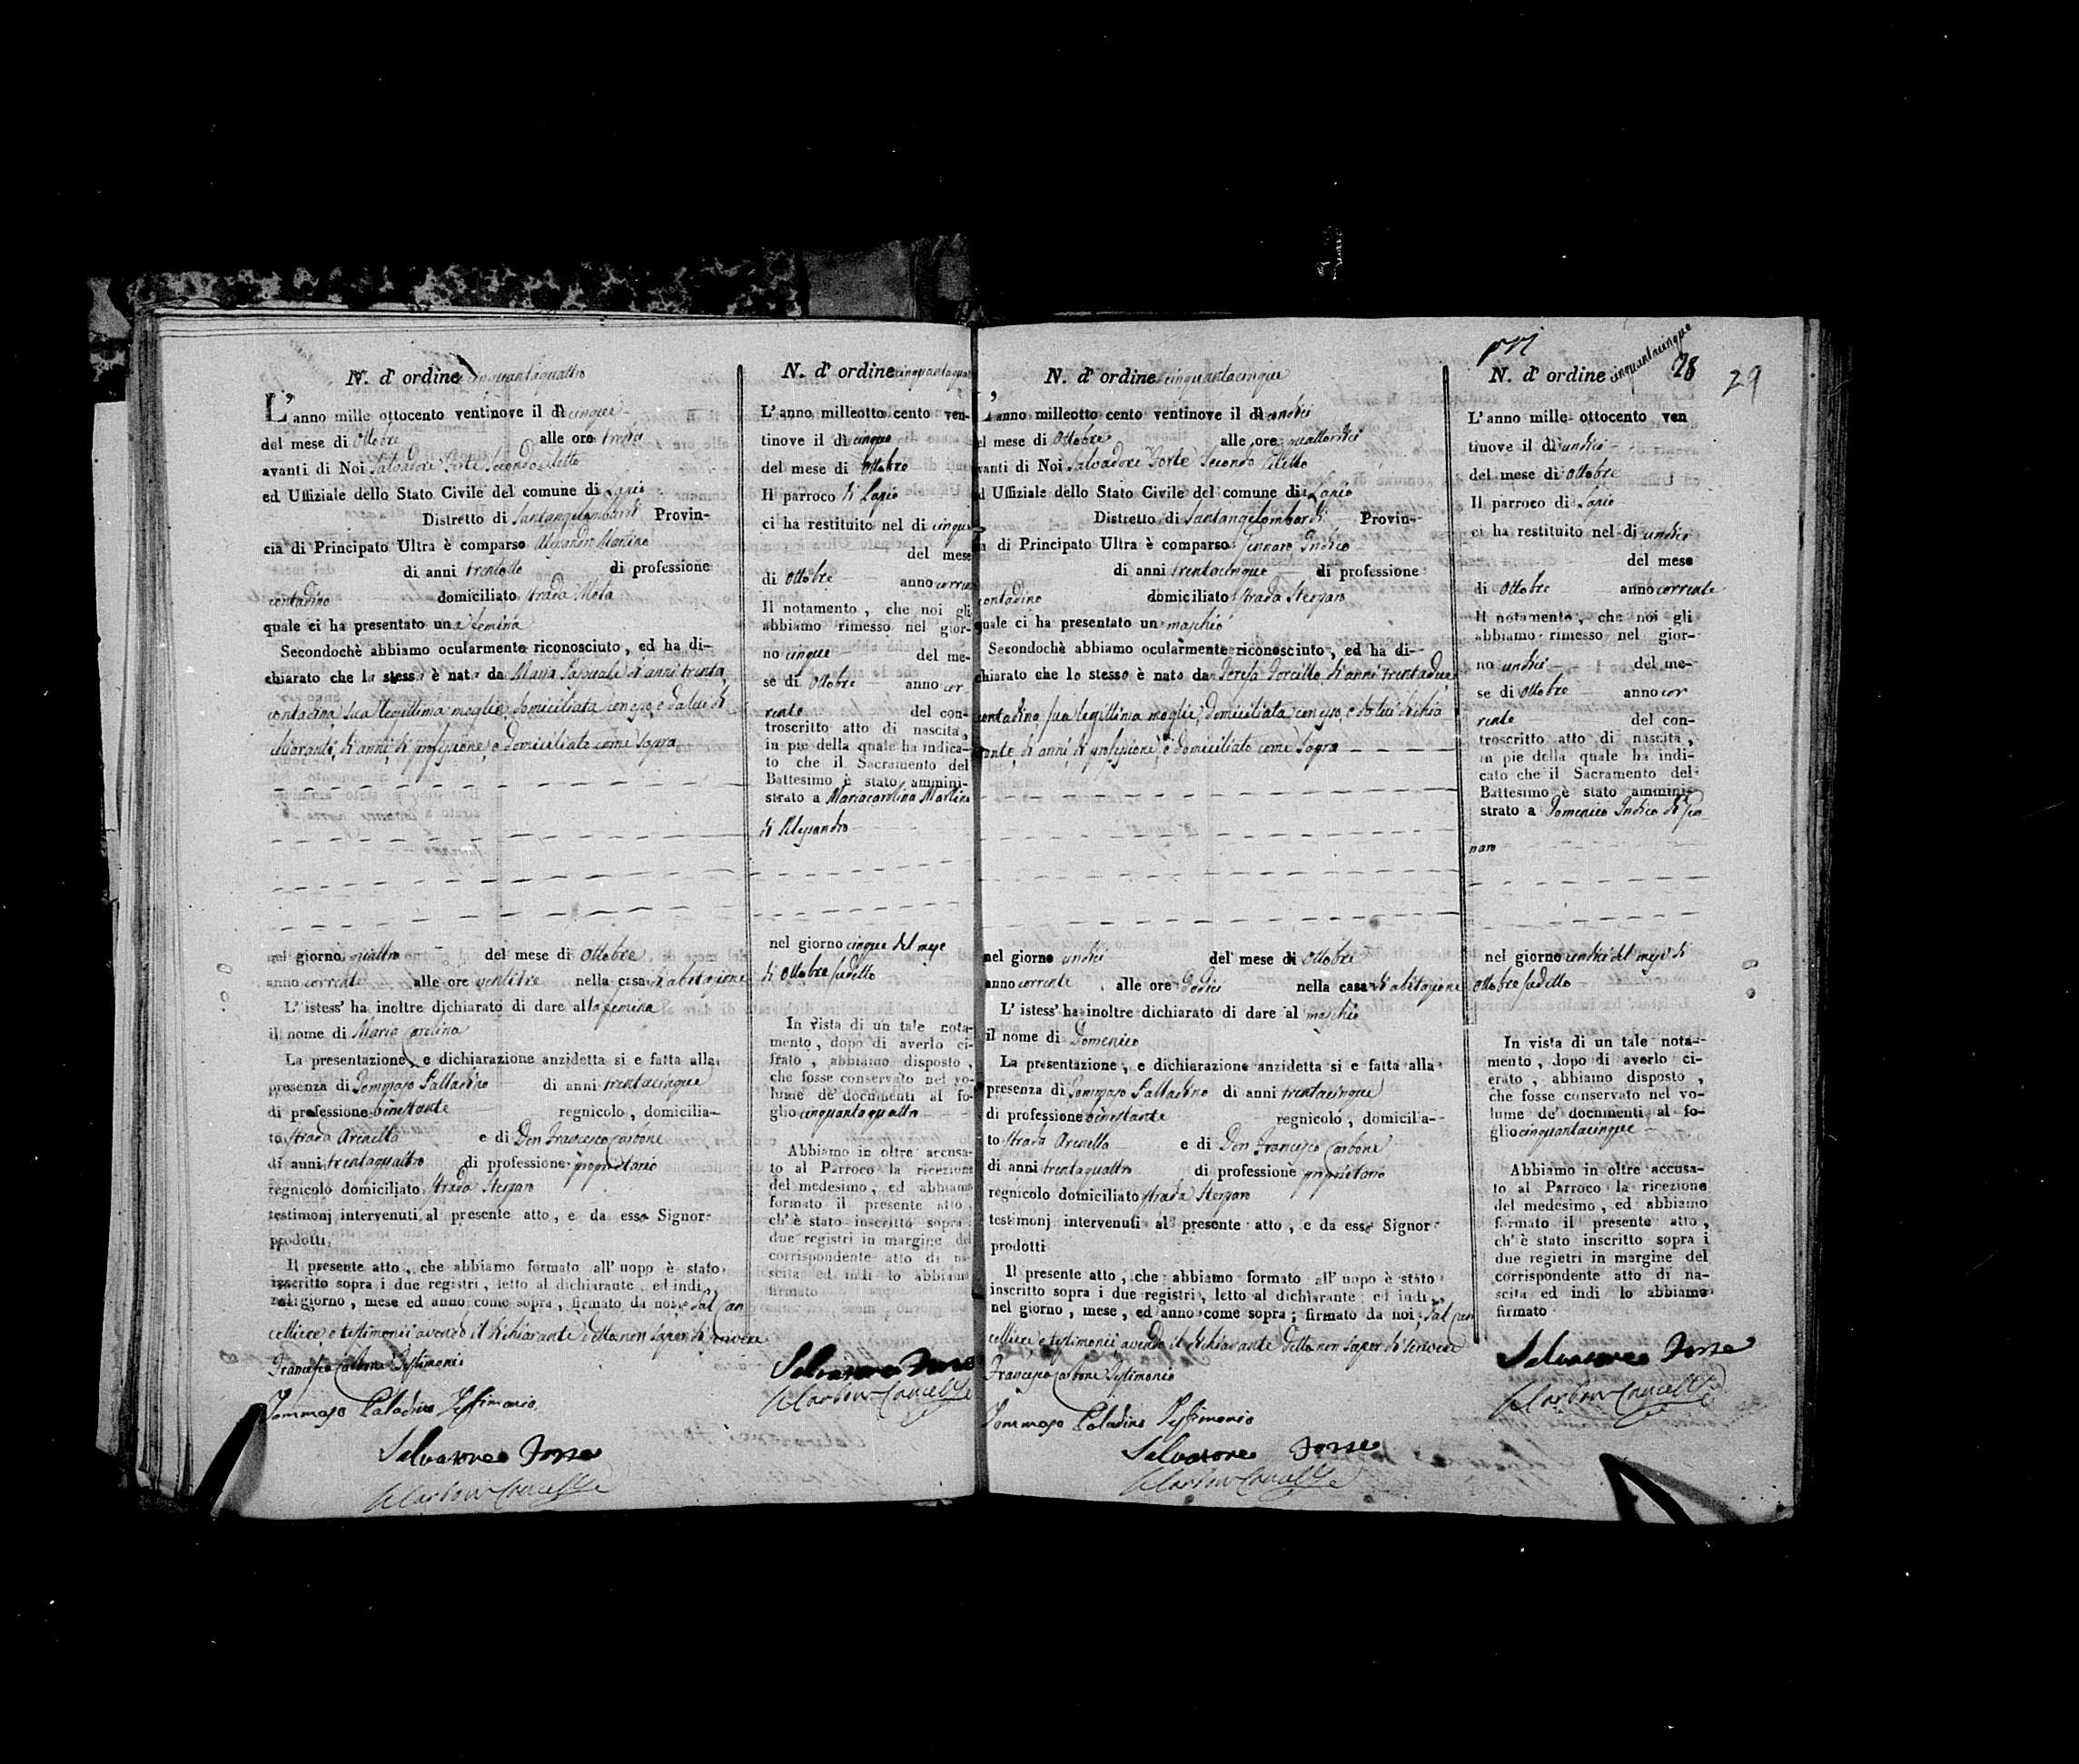 N. d' ordine cinquantaquattro
L' anno mille ottocento ventinove il dì cinque
del mese di Ottobre alle ore tredici
avanti di Noi Salvadore Forte Secondo Eletto
ed Uffiziale dello Stato Civile del comune di Lapio
Distretto di Santangelombardi Provin-
cia di Principato Ultra è comparso Alesandro Martino
di anni trentotto di professione
contadino domiciliato strada Meta
quale ci ha presentato una femina
Secondochè abbiamo ocularmente riconosciuto, ed ha di-
chiarato che la stessa è nata da Maria Pasquale di anni trenta
contadina sua legittima moglie, domiciliata con esso, e da lui di
chiarante, di anni, di professione, e domiciliato come sopra
nel giorno quattro del mese di Ottobre
anno corrente alle ore ventitre nella casa di abitazione
L' istess' ha inoltre dichiarato di dare alla femina
il nome di Maria Carolina
La presentazione, e dichiarazione anzidetta si e fatta alla
presenza di Tommaso Palladino di anni trentacinque
di professione benestante regnicolo, domicilia-
to strada Arenella e di Don Francesco Carbone
di anni trentaquattro di professione proprietario
regnicolo domiciliato strada Stergaro
testimonj intervenuti al presente atto, e da esso Signor
prodotti,
Il presente atto, che abbiamo formato all' uopo è stato
inscritto sopra i due registri, letto al dichiarante, ed indi,
nel giorno, mese ed anno come sopra, firmato da noi, dal Can
celliere e testimonii avendo il dichiarante detto non saper di scrivere
Francesco Carbone Testimonio
Tommaso Paladino Testimonio
Salvatore Forte
Carbone Cancelliere
N. d' ordine cinquantaquat
L' anno milleotto cento ven-
tinove il dì cinque
del mese di Ottobre
Il parroco di Lapio
ci ha restituito nel dì cinque
del mese
di Ottobre anno corren
Il notamento, che noi gli
abbiamo rimesso nel gior-
no cinque del me-
se di Ottobre anno cor
rente del con-
troscritto atto di nascita,
in pie della quale ha indica-
to che il Sacramento del
Battesimo è stato ammini-
strato a Mariacarolina Martino
di Alesandro
nel giorno cinque del mese
di Ottobre sudetto
In vista di un tale nota-
mento, dopo di averlo ci-
frato, abbiamo disposto,
che fosse conservato nel vo-
lume de' documenti al fo-
glio cinquantaquattro
Abbiamo in oltre accusa-
to al Parroco la ricezione
del medesimo, ed abbiamo
formato il presente atto,
ch' è stato inscritto sopra i
due registri in margine del
corrispondente atto di na-
scita ed indi lo abbiamo
firmato
Salvatore Forte
Carbone Cancelliere
N. d' ordine cinquantacinque
L' anno milleotto cento ventinove il dì undici
el mese di Ottobre alle ore quattordici
vanti di Noi Salvadore Forte Secondo Eletto
d Uffiziale dello Stato Civile del comune di Lapio
Distretto di Santangelombardi Provin-
a di Principato Ultra è comparso Gennaro Indico
di anni trentacinque di professione
contadino domiciliato strada Stergaro
quale ci ha presentato un maschio
Secondochè abbiamo ocularmente riconosciuto, ed ha di-
chiarato che lo stesso è nato da Teresa Forcillo di anni trentadue
contadina, sua legittima moglie, domiciliata con esso, e da lui dichia
rante, di anni, di professione, e domiciliato come sopra
nel giorno undici del mese di Ottobre
anno corrente alle ore dodici nella casa di abitazione
L' istess' ha inoltre dichiarato di dare al maschio
il nome di Domenico
La presentazione, e dichiarazione anzidetta si e fatta alla
presenza di Tommaso Palladino di anni trentacinque
di professione benestante regnicolo, domicilia-
to strada Arenella e di Don Francesco Carbone
di anni trentaquattro di professione proprietario
regnicolo domiciliato strada Stergaro
testimonj intervenuti al presente atto, e da esso Signor
prodotti
Il presente atto, che abbiamo formato all' uopo è stato
inscritto sopra i due registri, letto al dichiarante ed indi,
nel giorno, mese, ed anno come sopra; firmato da noi, dal Can
celliere e testimonii avendo il dichiarante detto non saper di scrivere
Francesco Carbone Testimonio
Tommaso Paladino Testimonio
Salvatore Forte
Carbone Cancelliere
28
29
N. d' ordine cinquantacinque
L' anno mille ottocento ven
tinove il dì undici
del mese di Ottobre
Il parroco di Lapio
ci ha restituito nel dì undici
del mese
di Ottobre anno corrente
Il notamento, che noi gli
abbiamo rimesso nel gior-
no undici del me-
se di Ottobre anno cor
rente del con-
troscritto atto di nascita,
in pie della quale ha indi-
cato che il Sacramento del
Battesimo è stato ammini-
strato a Domenico Indico di Gen
naro
nel giorno undici del mese di
Ottobre sudetto
In vista di un tale nota-
mento, dopo di averlo ci-
erato, abbiamo disposto,
che fosse conservato nel vo-
lume de' documenti al fo-
glio cinquantacinque
Abbiamo in oltre accusa-
to al Parroco la ricezione
del medesimo, ed abbiamo
formato il presente atto,
ch' è stato inscritto sopra i
due registri in margine del
corrispondente atto di na-
scita ed indi lo abbiamo
firmato
Salvatore Forte
Carbone Cancelliere